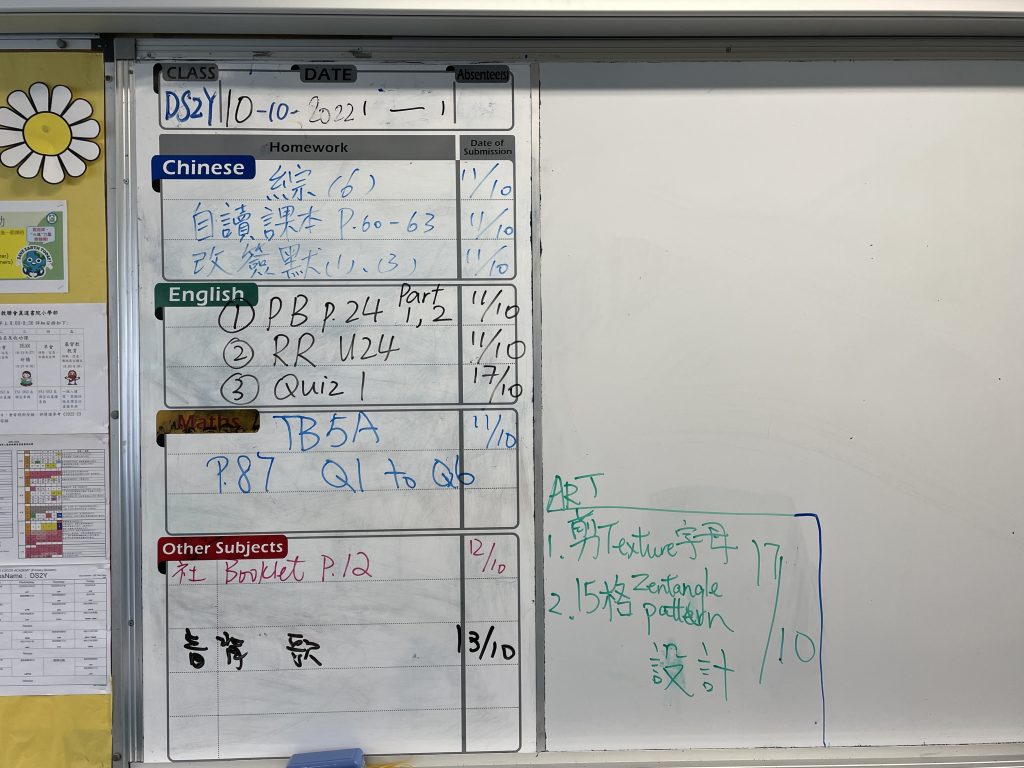 CLASS DATE Absentees
DS2Y 10-10-2022 (一)
Homework Date of Submission
Chinese
綜(6) 11/10
自讀課本 P.60-63 11/10
改簽默(1)、(3) 11/10
English
① PB p.24 Part 1, 2 11/10
② RR U24 11/10
③ Quiz 1 17/10
Maths
TB5A 11/10
P.87 Q1 to Q6
Other Subjects
社 Booklet P.12 12/10
歌 13/10
ART
1. 剪Texture字母 17/10
2. 15格 Zentangle pattern
設計
SAVE EARTH
DS2Y